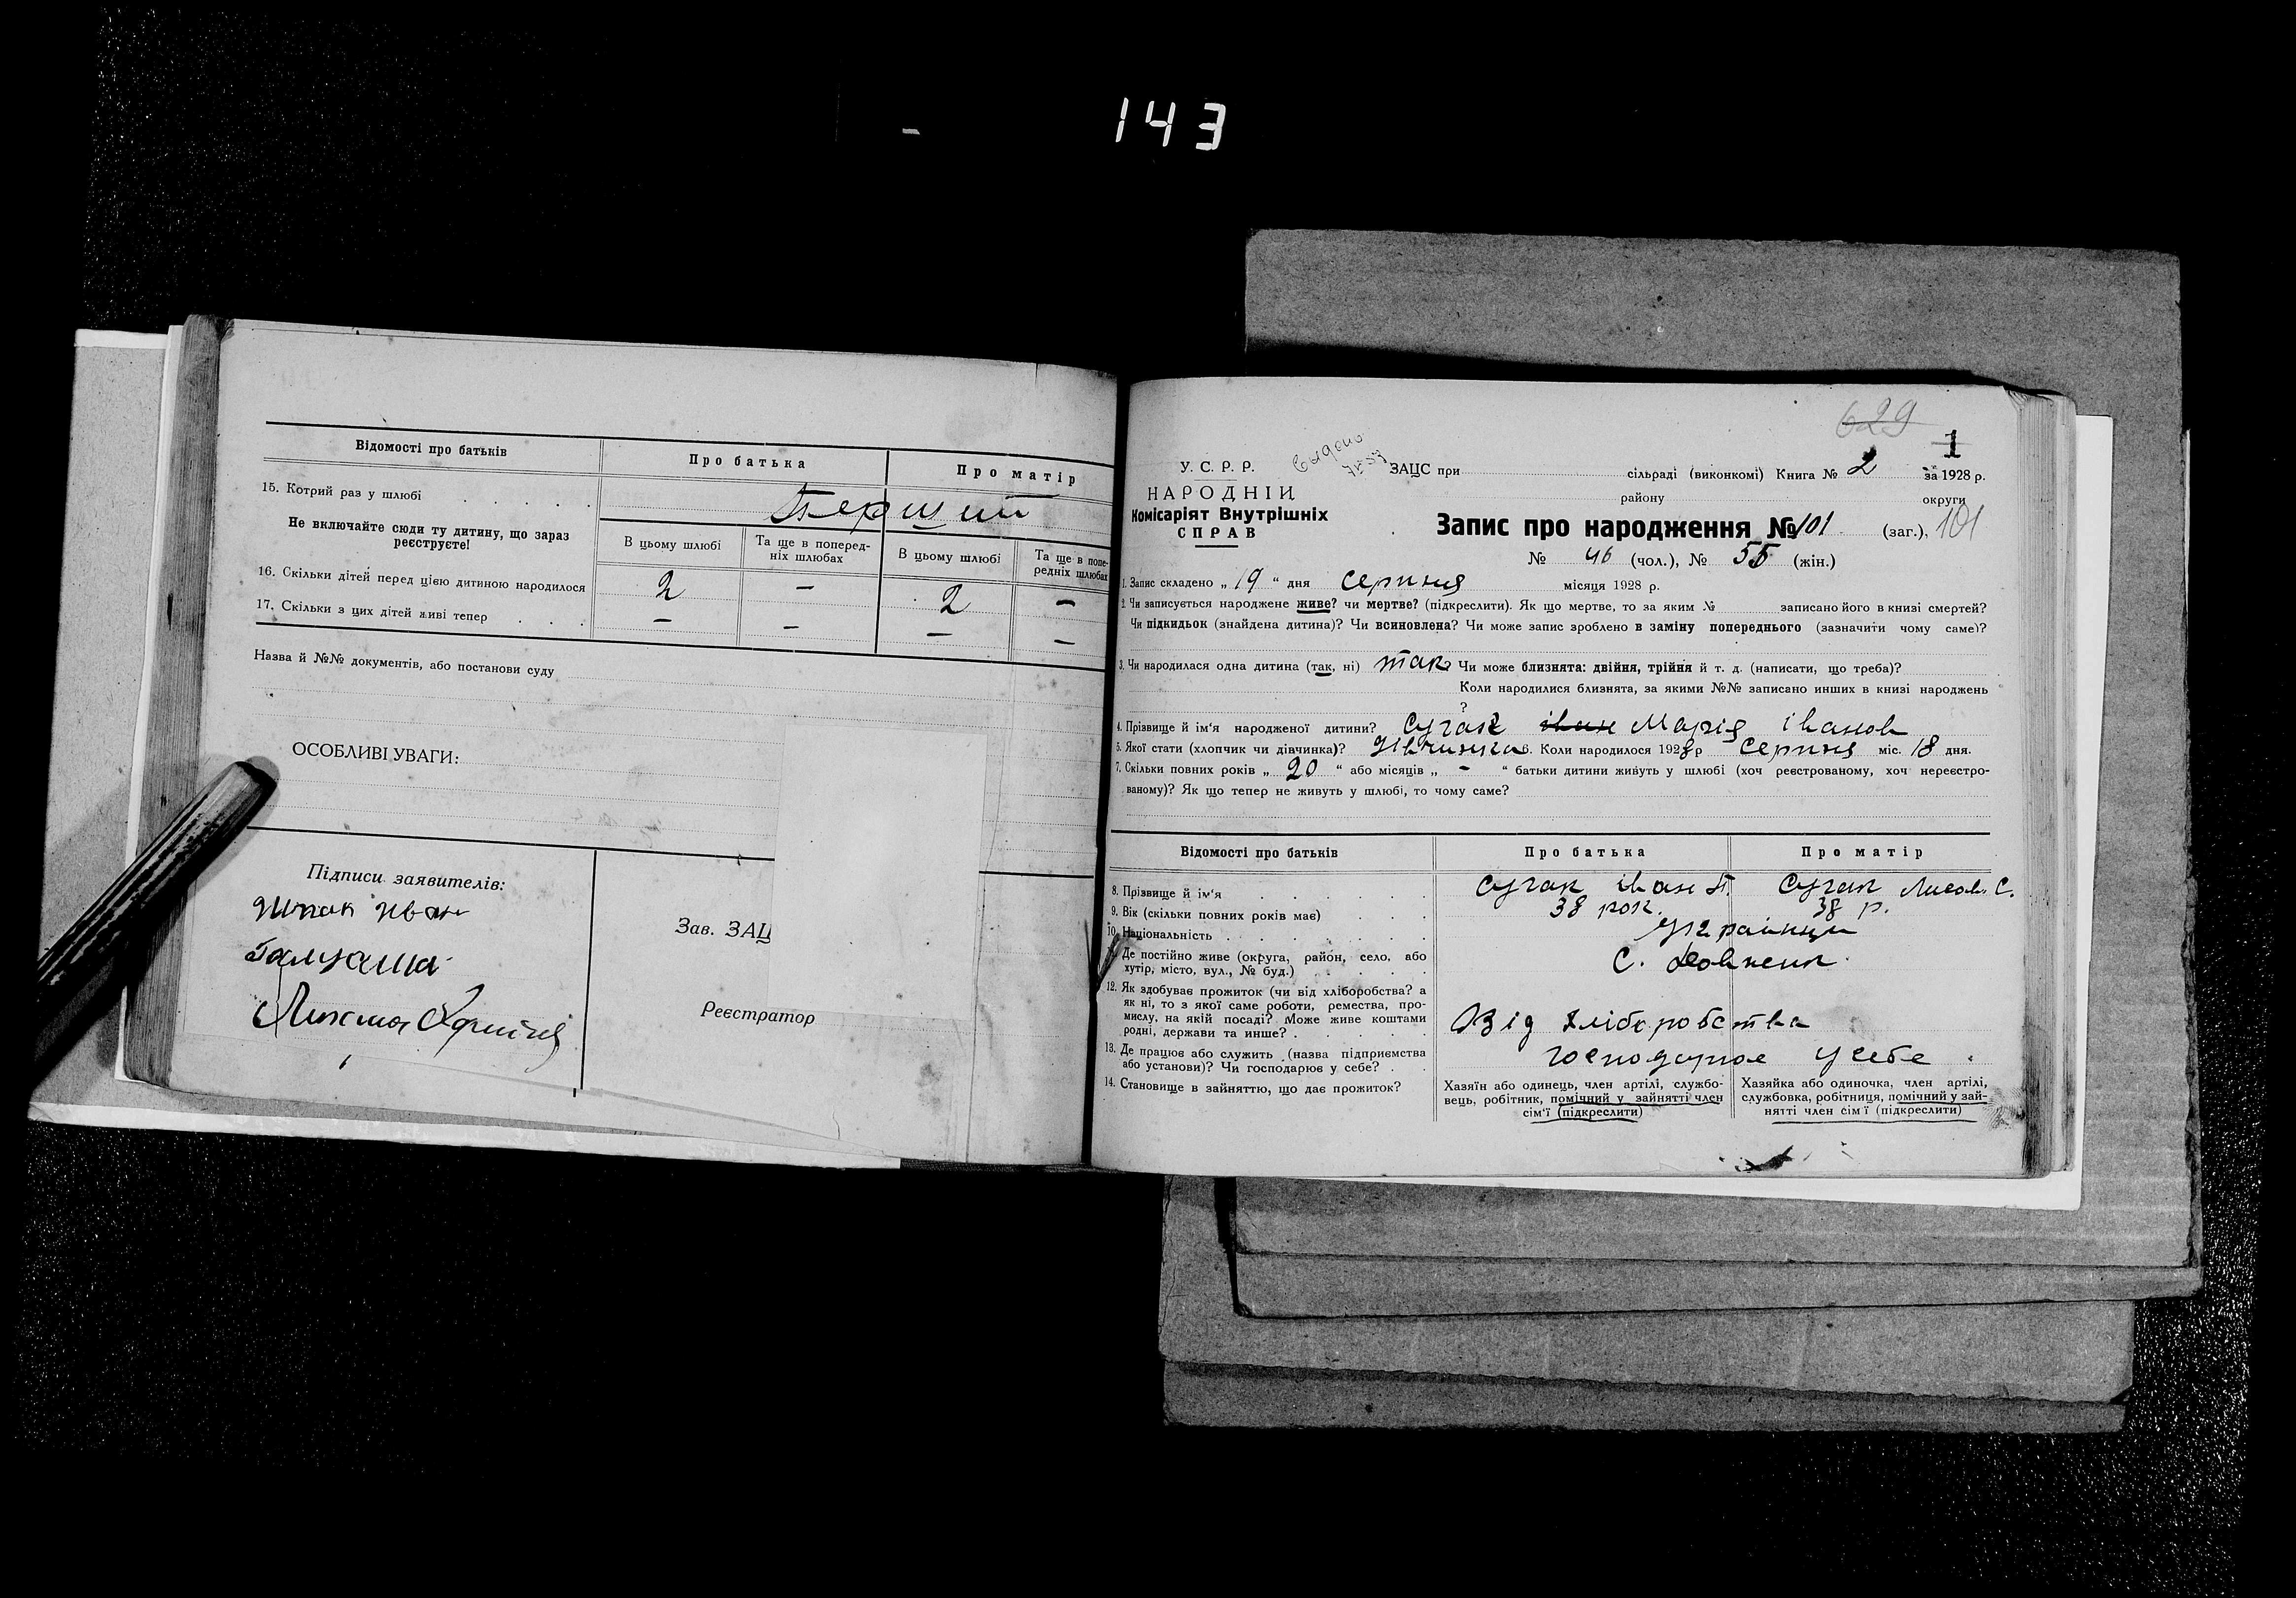 143
Відомості про батьків
Про батька
Про матір
15. Котрий раз у шлюбі
Перший
Не включайте сюди ту дитину, що зараз
реєструєте!
В цьому шлюбі
Та ще в поперед-
ніх шлюбах
В цьому шлюбі
Та ще в попе-
редніх шлюбах
16. Скільки дітей перед цією дитиною народилося
2 – 2 –
17. Скільки з цих дітей живі тепер
– – – –
Назва й №№ документів, або постанови суду
ОСОБЛИВІ УВАГИ:
Підписи заявителів:
Шпак Иван
Зав. ЗАЦ
Реєстратор
629
1
У. С. Р. Р.
НАРОДНІЙ
Комісаріят Внутрішніх
СПРАВ
ЗАЦС при сільраді (виконкомі) Книга № 2 за 1928 р.
району округи
Запис про народження № 101 (заг.), 101
№ 46 (чол.), № 55 (жін.)
1. Запис складено „ 19 “ дня серпня місяця 1928 р.
2. Чи записується народжене живе? чи мертве? (підкреслити). Як що мертве, то за яким № записано його в книзі смертей?
Чи підкидьок (знайдена дитина)? Чи всиновлена? Чи може запис зроблено в заміну попереднього (зазначити чому саме)?
3. Чи народилася одна дитина (так, ні) так Чи може близнята: двійня, трійня й т. д. (написати, що треба)?
Коли народилися близнята, за якими №№ записано инших в книзі народжень
?
4. Прізвище й ім'я народженої дитини? Сугак іван Марія іванов
5. Якої стати (хлопчик чи дівчинка)? Дівчинка 6. Коли народилося 1928 р серпня міс. 18 дня.
7. Скільки повних років „ 20 “ або місяців „ - “ батьки дитини живуть у шлюбі (хоч реєстрованому, хоч нереєстро-
ваному)? Як що тепер не живуть у шлюбі, то чому саме?
Відомості про батьків
Про батька
Про матір
8. Прізвище й ім'я
Сугак іван П. Сугак С.
9. Вік (скільки повних років має)
38 рок. 38 р.
10. Національність
Українци
11. Де постійно живе (округа, район, село, або
хутір, місто, вул., № буд.)
с.
12. Як здобуває прожиток (чи від хліборобства? а
як ні, то з якої саме роботи, ремества, про-
мислу, на якій посаді? Може живе коштами
родні, держави та инше?
Від хліборобства
13. Де працює або служить (назва підприємства
або установи)? Чи господарює у себе?
господарює у себе
14. Становище в зайняттю, що дає прожиток?
Хазяїн або одинець, член артілі, службо-
вець, робітник, помічний у зайнятті член
сім'ї (підкреслити)
Хазяйка або одиночка, член артілі,
службовка, робітниця, помічний у зай-
нятті член сім'ї (підкреслити)